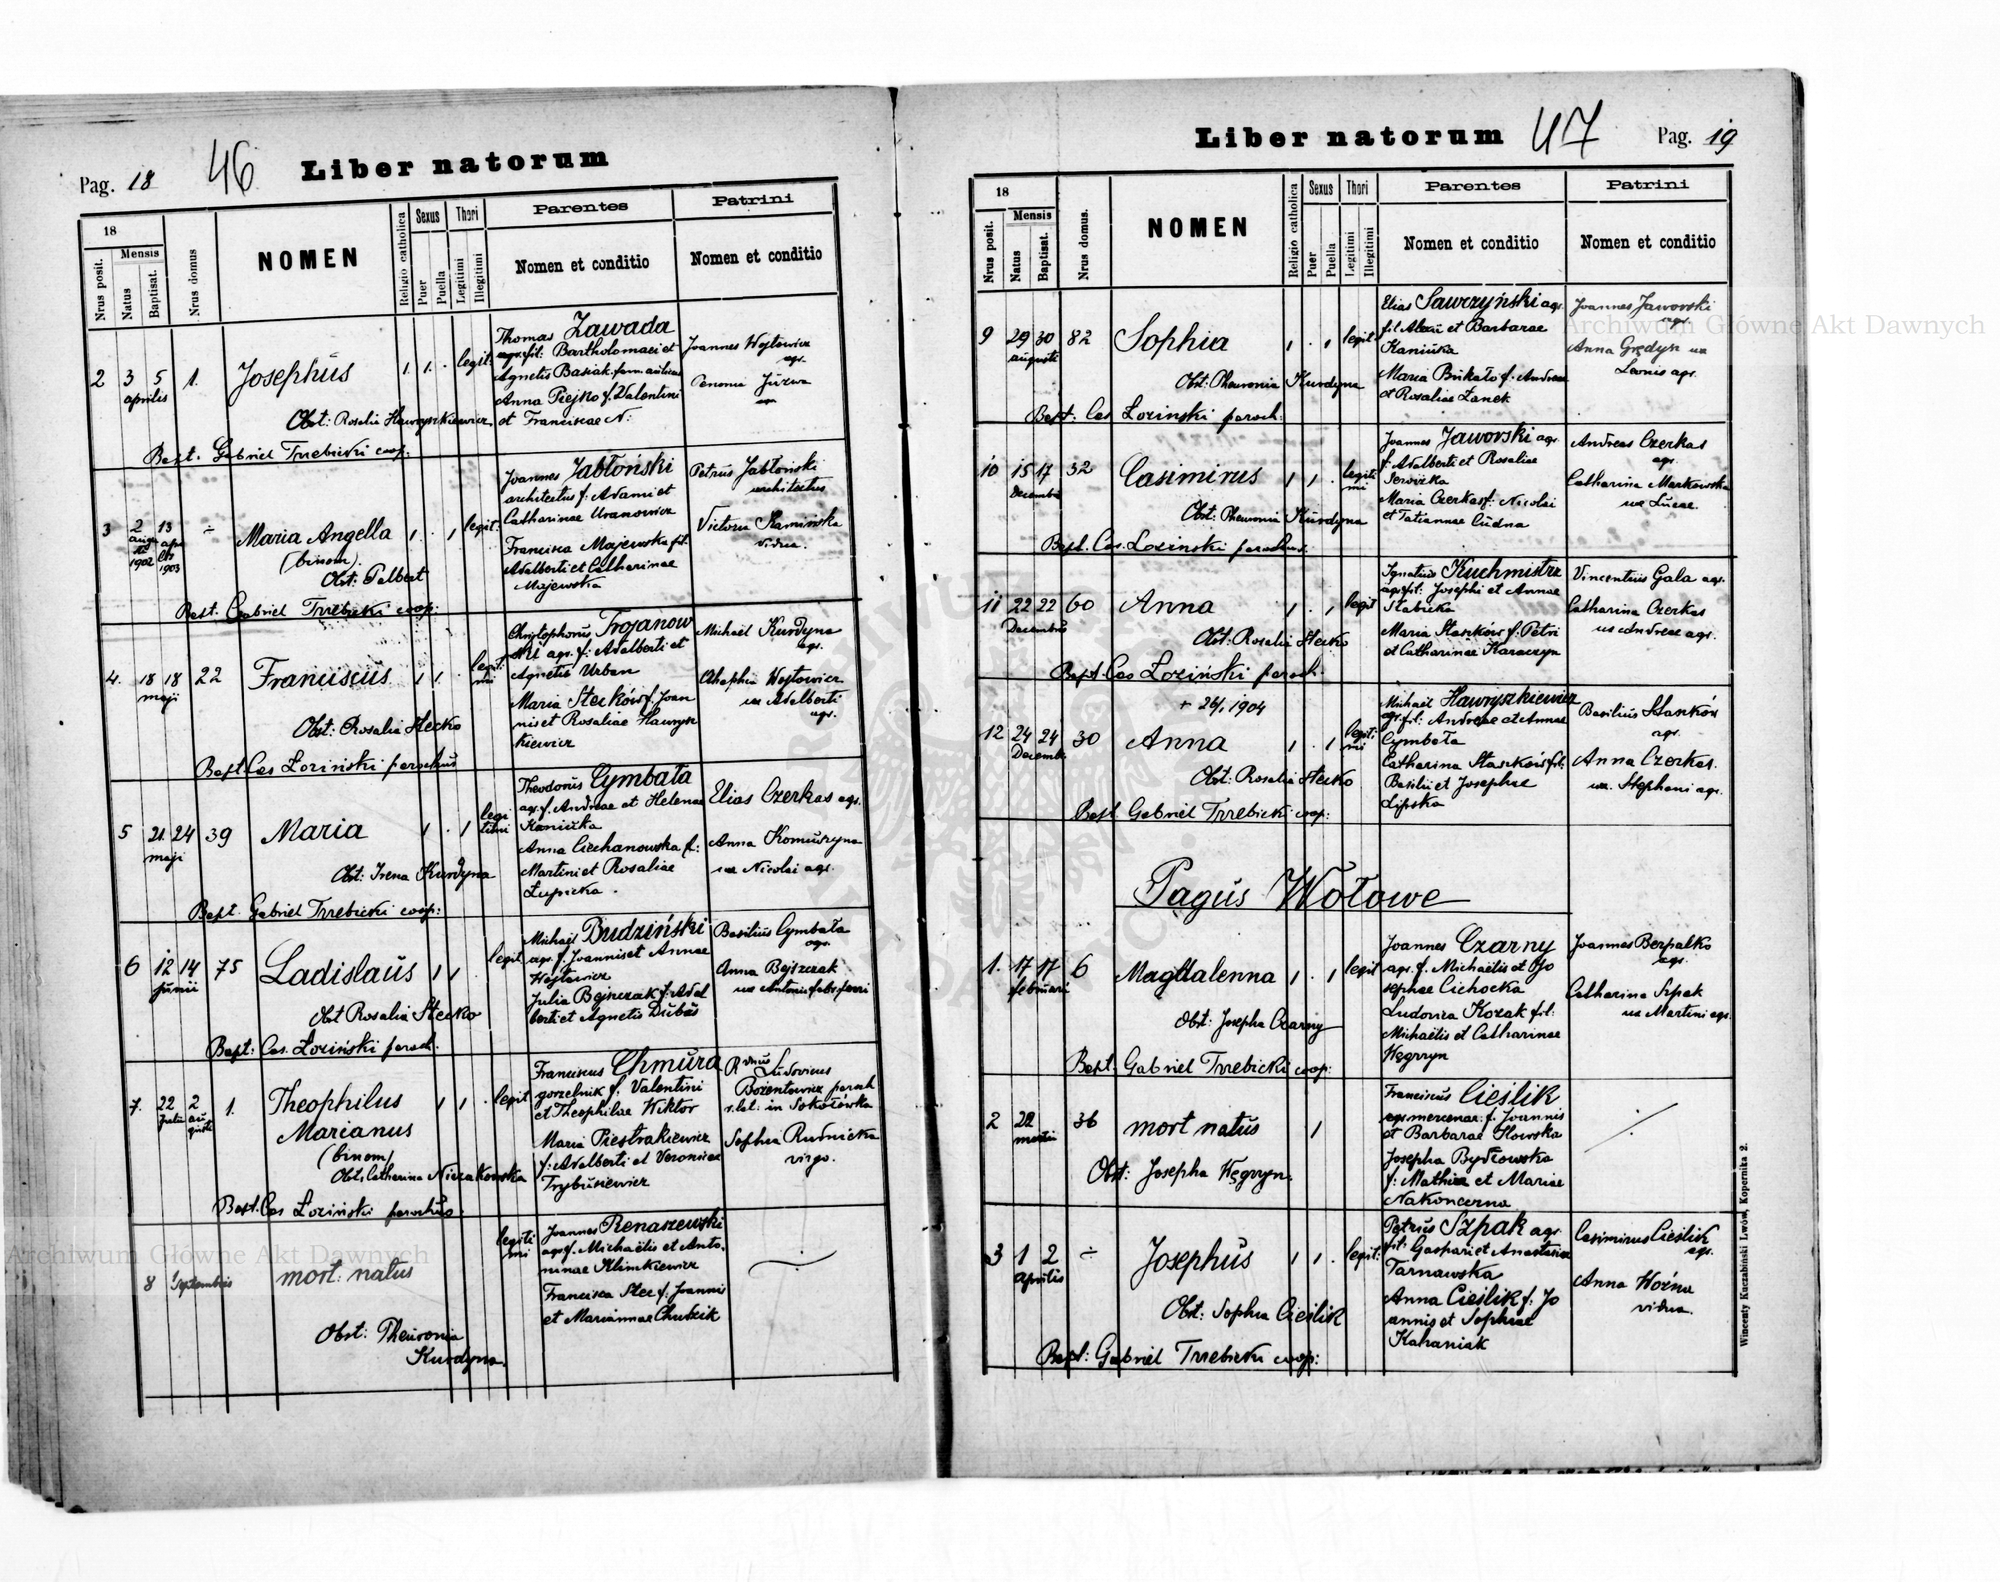 Pag. 18 46 Liber natorum
18
Mensis
Nrus posit.
Natus
Baptisat.
Nrus domus
NOMEN
Religio catholica
Sexus
Puer
Puella
Thori
Legitimi
Illegitimi
Parentes
Nomen et conditio
Patrini
Nomen et conditio
2 3 5 1. Josephus 1. 1. . legit.
aprilis
Thomas Zawada
agr. fil: Bartholomaei et
Agnetis Basiak
Anna Piejko f. Valentini
et Franciscae N.
Joannes Wojtowicz
agr.
Penomia Juzwa
Obst: Rosalia Hawryszkiewicz
Bapt. Gabriel Trzebicki coop.
3 2 13 ÷ Maria Angella 1. . 1 legit.
1902 1903
(binom)
Joannes Jabłoński
architectus f: Adami et
Catharinae Uranowicz
Francisca Majewska fil.
Adalberti et Catharinae
Majewska
Petrus Jabłoński
architectus
Victoria Kamińska
vidua.
Obst: Palbert
Bapt. Gabriel Trzebicki coop:
4. 18 18 22 Franciscus 1 1. . legiti
maji mi
Christophorus Trojanow
ski agr. f: Adalberti et
Agnetis Urban
Maria Stecków f. Joan
nis et Rosaliae Hawrysz
kiewicz
Michaël Kurdyna
agr.
Ahaphia Wojtowicz
ux Adalberti
agr.
Obst: Rosalia Stecko
Bapt. Cas Łoziński parochus
5 21. 24 39 Maria 1 . 1 legi
maji timi
Theodorus Cymbała
agr. f. Andreae et Helenae
Kaniuka
Anna Ciechanowska f:
Martini et Rosaliae
Lupicka.
Elias Czerkas agr.
Anna Komuszyna
ux Nicolai agr.
Obst: Irena Kurdyna
Bapt. Gabriel Trzebicki coop:
6 12 14 75 Ladislaus 1 1 . legit.
junii
Michaël Budziński
agr. f. Joannis et Annae
Wojtowicz
Julia Bejszczak f. Adal
berti et Agnetis Dubas
Basilius Cymbała
agr.
Anna Bejszczak
ux Antonii fabr. ferri
Obst Rosalia Stecko
Bapt: Cas. Łoziński paroch.
7. 22 2 1. Theophilus 1 1 . legit
Julii augusti
Marianus
(binom)
Franciscus Chmura
gorzelnik f. Valentini
et Theophilae Wiktor
Maria Piestrakiewicz
f: Adalberti et Veronicae
Trybusiewicz
Rdnus Ludovicus
Bożentowicz paroch
r. lat. in Sokołówka
Sophia Rudnicka
virgo.
Obst: Catharina Niczakowska
Bapt. Cas Łoziński parochus.
8 1 Septembris mort. natus legiti
mi
Joannes Renaszewski
agr. f. Michaëlis et Anto
ninae Klimkiewicz
Francisca Stec f: Joannis
et Mariannae Chudzik
Obst: Pheuronia
Kurdyna.
Liber natorum 47 Pag. 19
18
Mensis
Nrus posit.
Natus
Baptisat.
Nrus domus.
NOMEN
Religio catholica
Sexus
Puer
Puella
Thori
Legitimi
Illegitimi
Parentes
Nomen et conditio
Patrini
Nomen et conditio
9 29 30 82 Sophia 1 . 1 legit.
augusti
Elias Sawczyński agr.
fil Alexii et Barbarae
Kaniuka
Maria Bukało f. Andreae
et Rosaliae Lanek
Joannes Jaworski
agr.
Anna Grędys ux
Leonis agr.
Obst: Pheuronia Kurdyna
Bapt: Cas Łoziński paroch.
10 15 17 32 Casimirus 1 1 . legiti
Decembris mi
Joannes Jaworski agr.
f: Adalberti et Rosaliae
Maria Czerkas f: Nicolai
et Tatiannae Cudna
Andreas Czerkas
agr.
Catharina Markowska
ux Lucae.
Obst: Pheuronia Kurdyna
Bapt. Cas. Łoziński parochus.
11 22 22 60 Anna 1 . 1 legit
Decembris
Ignatius Kuchmistrz
agr fil: Josephi et Annae
Stabicka
Maria Staszków f. Petri
et Catharinae Karaczyn
Vincentius Gala agr.
Catharina Czerkas
ux Andreae agr.
Obst: Rosalia Stecko
Bapt. Cas Łoziński paroch.
+ 26/1 1904
12 24 24 30 Anna 1 . 1 legiti
Decemb. mi
Michaël Hawryszkiewicz
agr. fil: Andreae et Annae
Cymbała
Catharina Staszków fil:
Basilii et Josephae
Lipska
Basilius Staszków
agr.
Anna Czerkas.
ux. Stephani agr.
Obst: Rosalia Stecko
Bapt Gabriel Trzebicki coop:
Pagus Wołowe
1. 17 17 6 Magdalenna 1 . 1 legit
februarii
Joannes Czarny
agr. f. Michaëlis et Jo
sephae Cichocka
Ludovica Kozak fil:
Michaëlis et Catharinae
Węgrzyn
Joannes Berpalko
agr.
Catharina Szpak
ux Martini agr.
Obst: Josepha Czarny
Bapt. Gabriel Trzebicki coop:
2 22 36 mort natus 1
martii
Franciscus Cieślik
agr. mercenar. f. Joannis
et Barbarae Słowska
Josepha Bydłowska
f: Mathiae et Mariae
Nakoneczna
Obst: Josepha Węgrzyn.
3 1 2 ÷ Josephus 1 1 . legit:
Aprilis
Petrus Szpak agr
fil: Gaspari et Anastasiae
Tarnawska
Anna Cieślik f. Jo
annis et Sophiae
Kahaniak
Casimirus Cieślik
agr.
Anna Woźna
vidua.
Obst: Sophia Cieślik
Bapt: Gabriel Trzebicki coop:
Wincenty Kuczabiński Lwów, Kopernika 2.
Archiwum Główne Akt Dawnych
Archiwum Główne Akt Dawnych